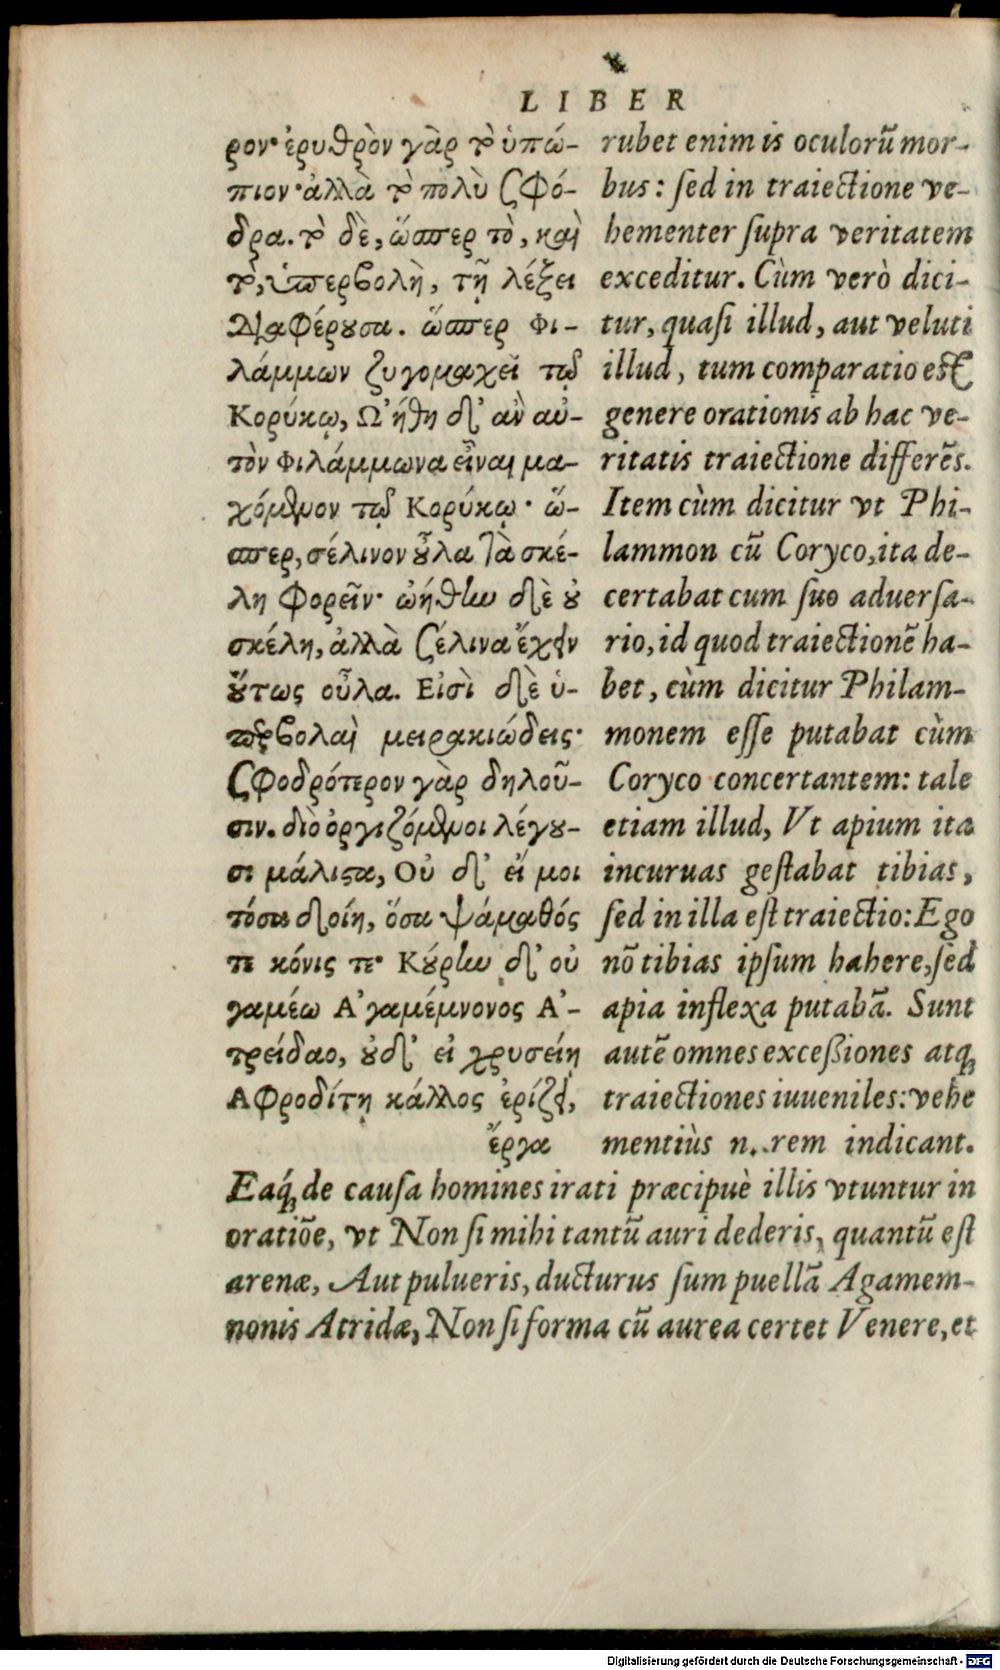 LIBER
ρον· ἐρυθρὸν γὰρ τὸ ὑπώ-
πιον· ἀλλὰ τὸ πολὺ σφό-
δρα. τὸ δὲ, ὥσπερ τὸ, καὶ
τὸ, ὑπερβολὴ, τῇ λέξει
διαφέρουσα. ὥσπερ Φι-
λάμμων ζυγομαχεῖ τῷ
Κορύκῳ, Ὠ'ήθη δ' ἂν αὐ-
τὸν Φιλάμμωνα εἶναι μα-
χόμενον τῷ Κορύκῳ· ὥ-
σπερ, σέλινον οὖλα τὰ σκέ-
λη φορεῖν· ὠήθην δὲ οὐ
σκέλη, ἀλλὰ σέλινα ἔχειν
οὕτως οὖλα. Εἰσὶ δὲ ὑ-
περβολαὶ μειρακιώδεις·
σφοδρότερον γὰρ δηλοῦ-
σιν. διὸ ὀργιζόμενοι λέγου-
σι μάλιστα, Οὐ δ' εἴ μοι
τόσα δοίη, ὅσα ψάμαθός
τε κόνις τε· Κούρην δ' οὐ
γαμέω Α'γαμέμνονος Α'-
τρείδαο, οὐδ' εἰ χρυσείη
Αφροδίτη κάλλος ἐρίζει,
ἔργα
rubet enim is oculorũ mor-
bus: sed in traiectione ve-
hementer supra veritatem
exceditur. Cùm verò dici-
tur, quasi illud, aut veluti
illud, tum comparatio est
genere orationis ab hac ve-
ritatis traiectione differẽs.
Item cùm dicitur vt Phi-
lammon cũ Coryco, ita de-
certabat cum suo aduersa-
rio, id quod traiectionẽ ha-
bet, cùm dicitur Philam-
monem esse putabat cùm
Coryco concertantem: tale
etiam illud, Vt apium ita
incuruas gestabat tibias,
sed in illa est traiectio: Ego
nõ tibias ipsum habere, sed
apia inflexa putabã. Sunt
autẽ omnes excessiones atq;
traiectiones iuueniles: vehe
mentiùs n. rem indicant.
Eaq́; de causa homines irati præcipuè illis vtuntur in
oratiõe, vt Non si mihi tantũ auri dederis, quantũ est
arenæ, Aut pulueris, ducturus sum puellã Agamem-
nonis Atridæ, Non si forma cũ aurea certet Venere, et
Digitalisierung gefördert durch die Deutsche Forschungsgemeinschaft - DFG